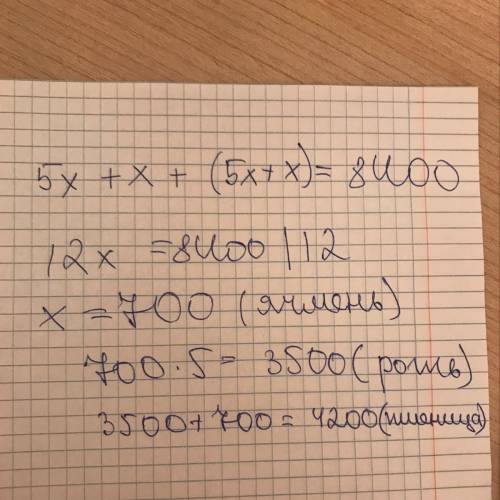 5x + x + (5x+x) = 8400
12x = 8400 | 12
x = 700 (ячмень)
700 · 5 = 3500 (рожь)
3500 + 700 = 4200 (пшеница)